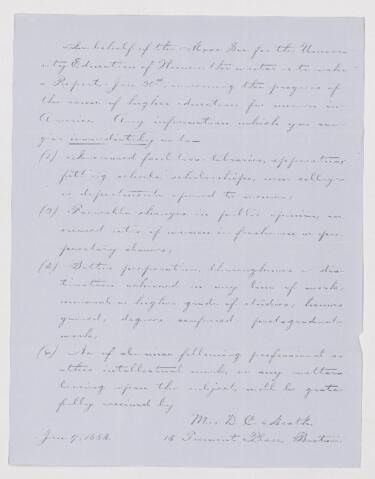 In behalf of the Mass. Soc. for the Univer-
sity Education of Women the writer is to make
a Report, Jan. 20th, concerning the progress of
the cause of higher education for women in
America. Any information which you can
give immediately as to—
(1) Increased facilities—libraries, apparatus,
fitting schools, scholarships, new colleges
or departments opened to women;
(2) Favorable changes in public opinion, in-
creased ratio of women in freshman or pre-
paratory classes;
(3) Better preparation, thoroughness or dis-
tinction achieved in any line of work,
removal or higher grade of studies, honors
gained, degrees conferred, postgraduate
work;
(4) No. of alumnae following professional or
other intellectual work, or any matters
bearing upon the subject, will be grate-
fully received by
Mrs. D. C. Heath
Jan. 9, 1886. 16 Tremont Place, Boston